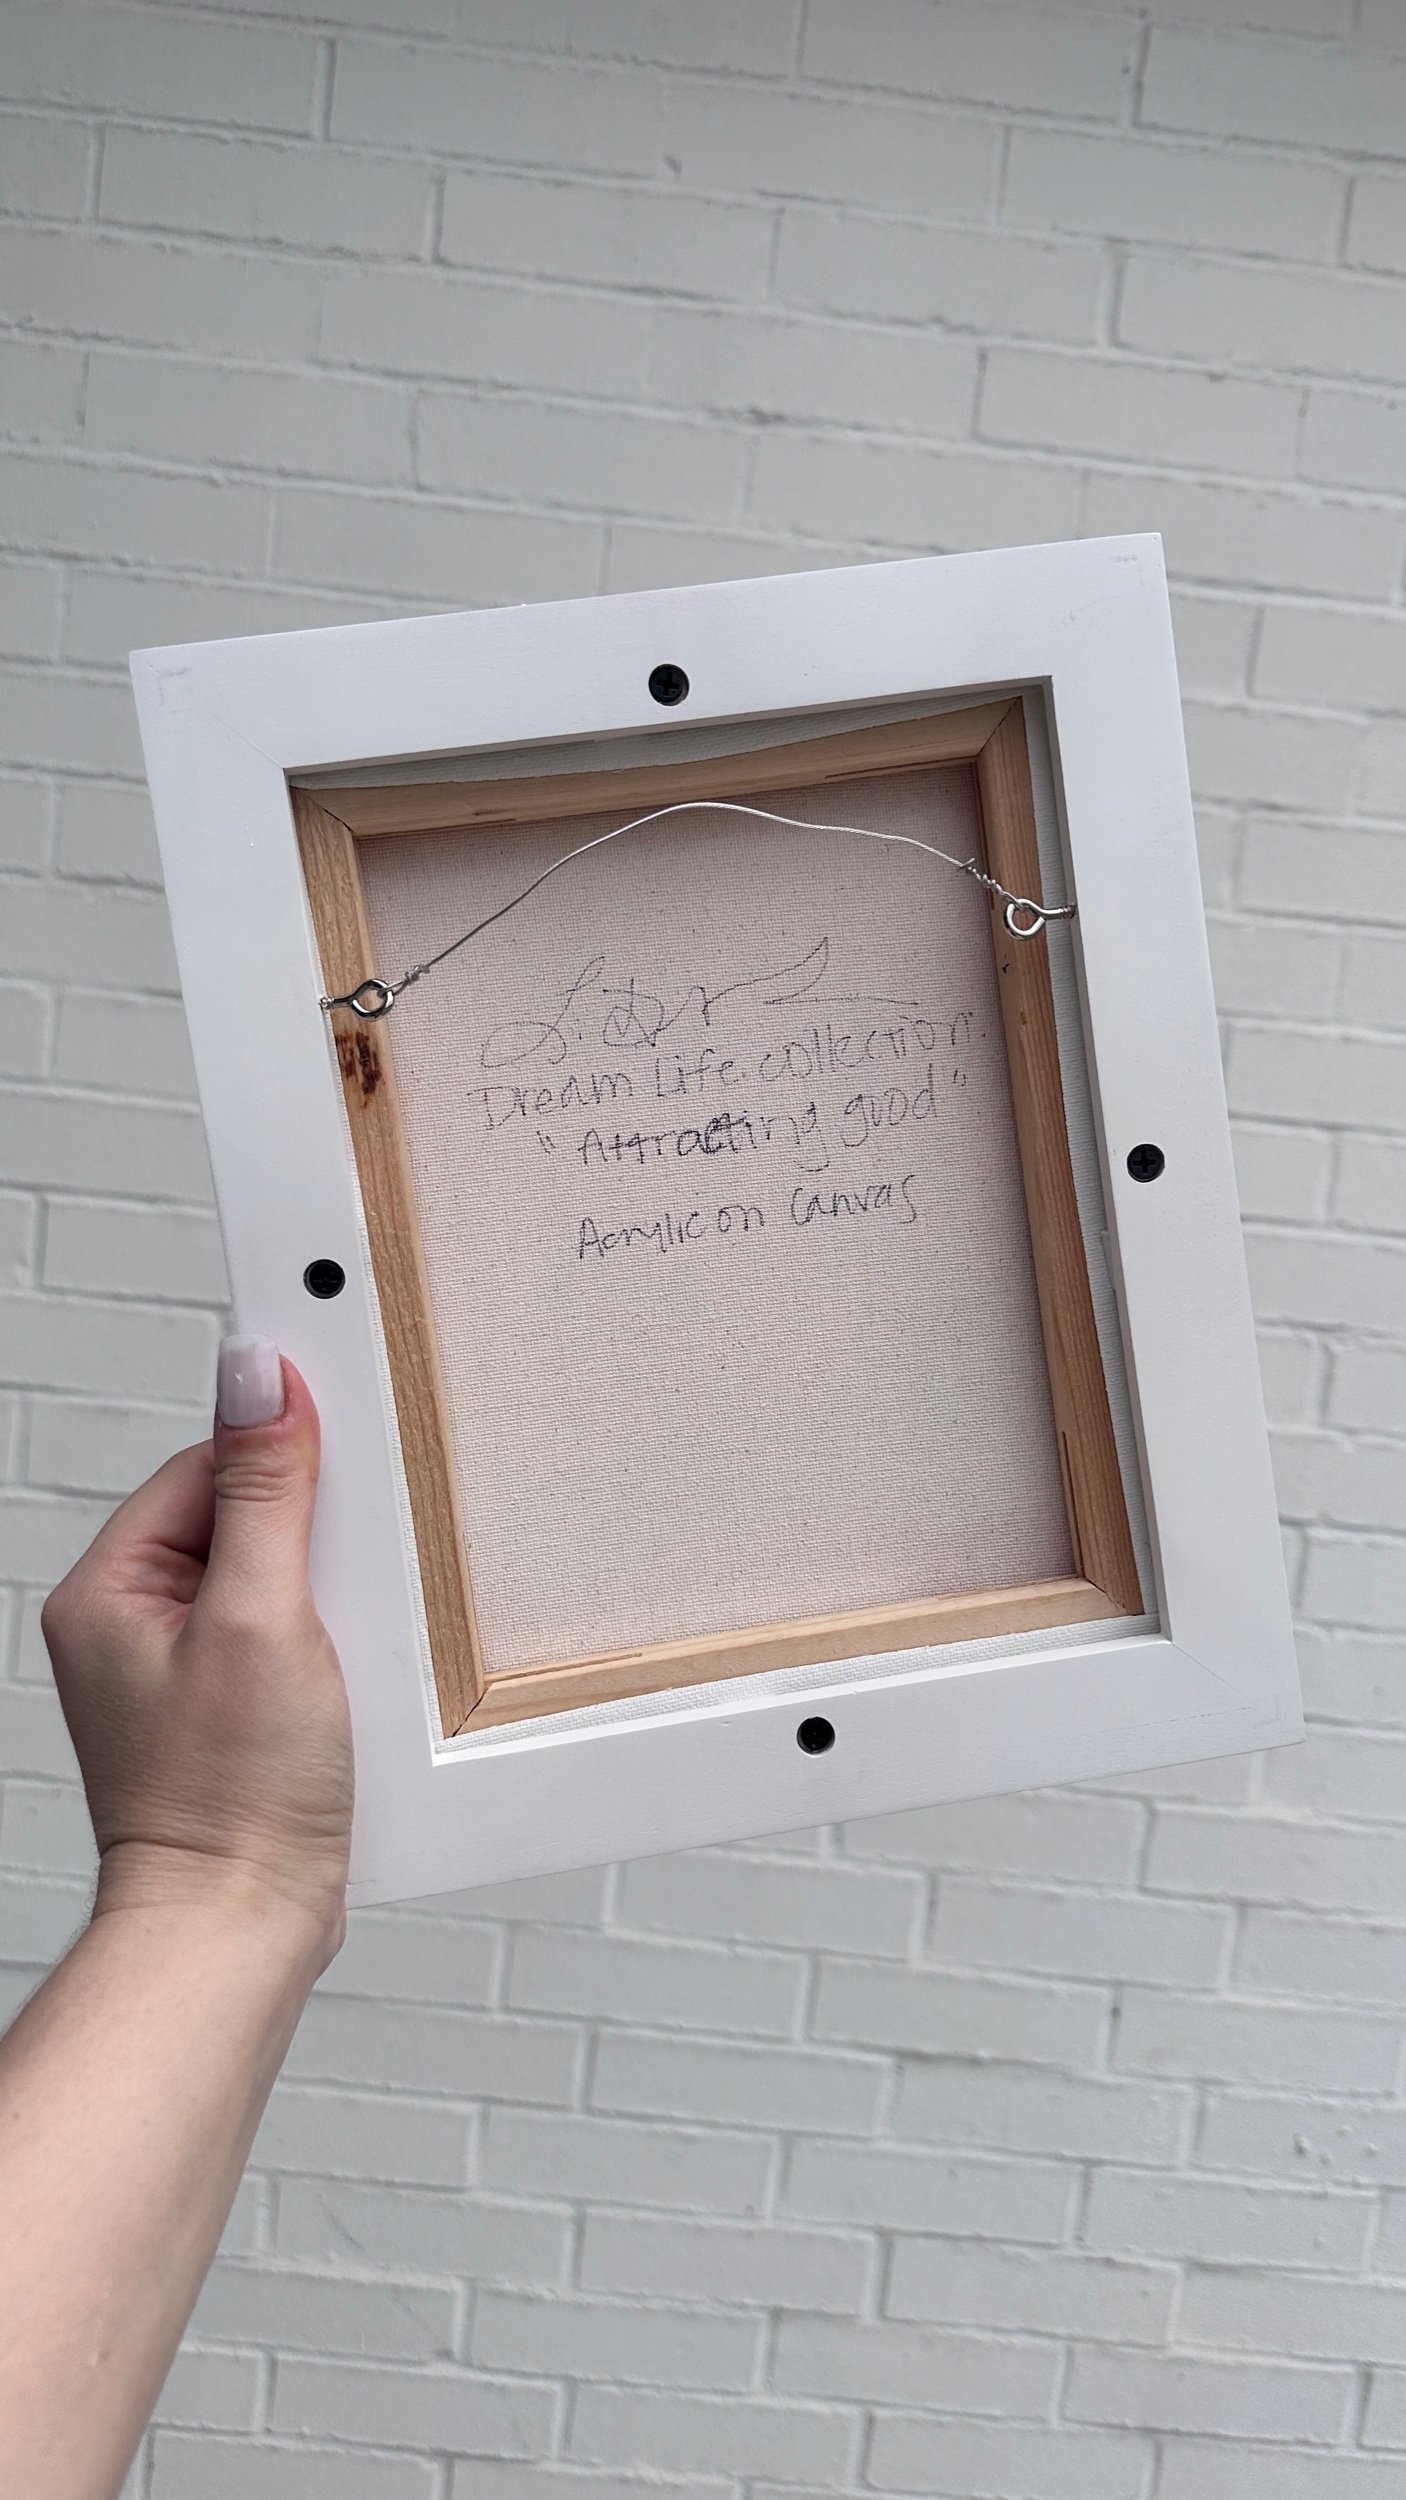 Dream Life. collection:
"Attracting good"
Acrylic on Canvas